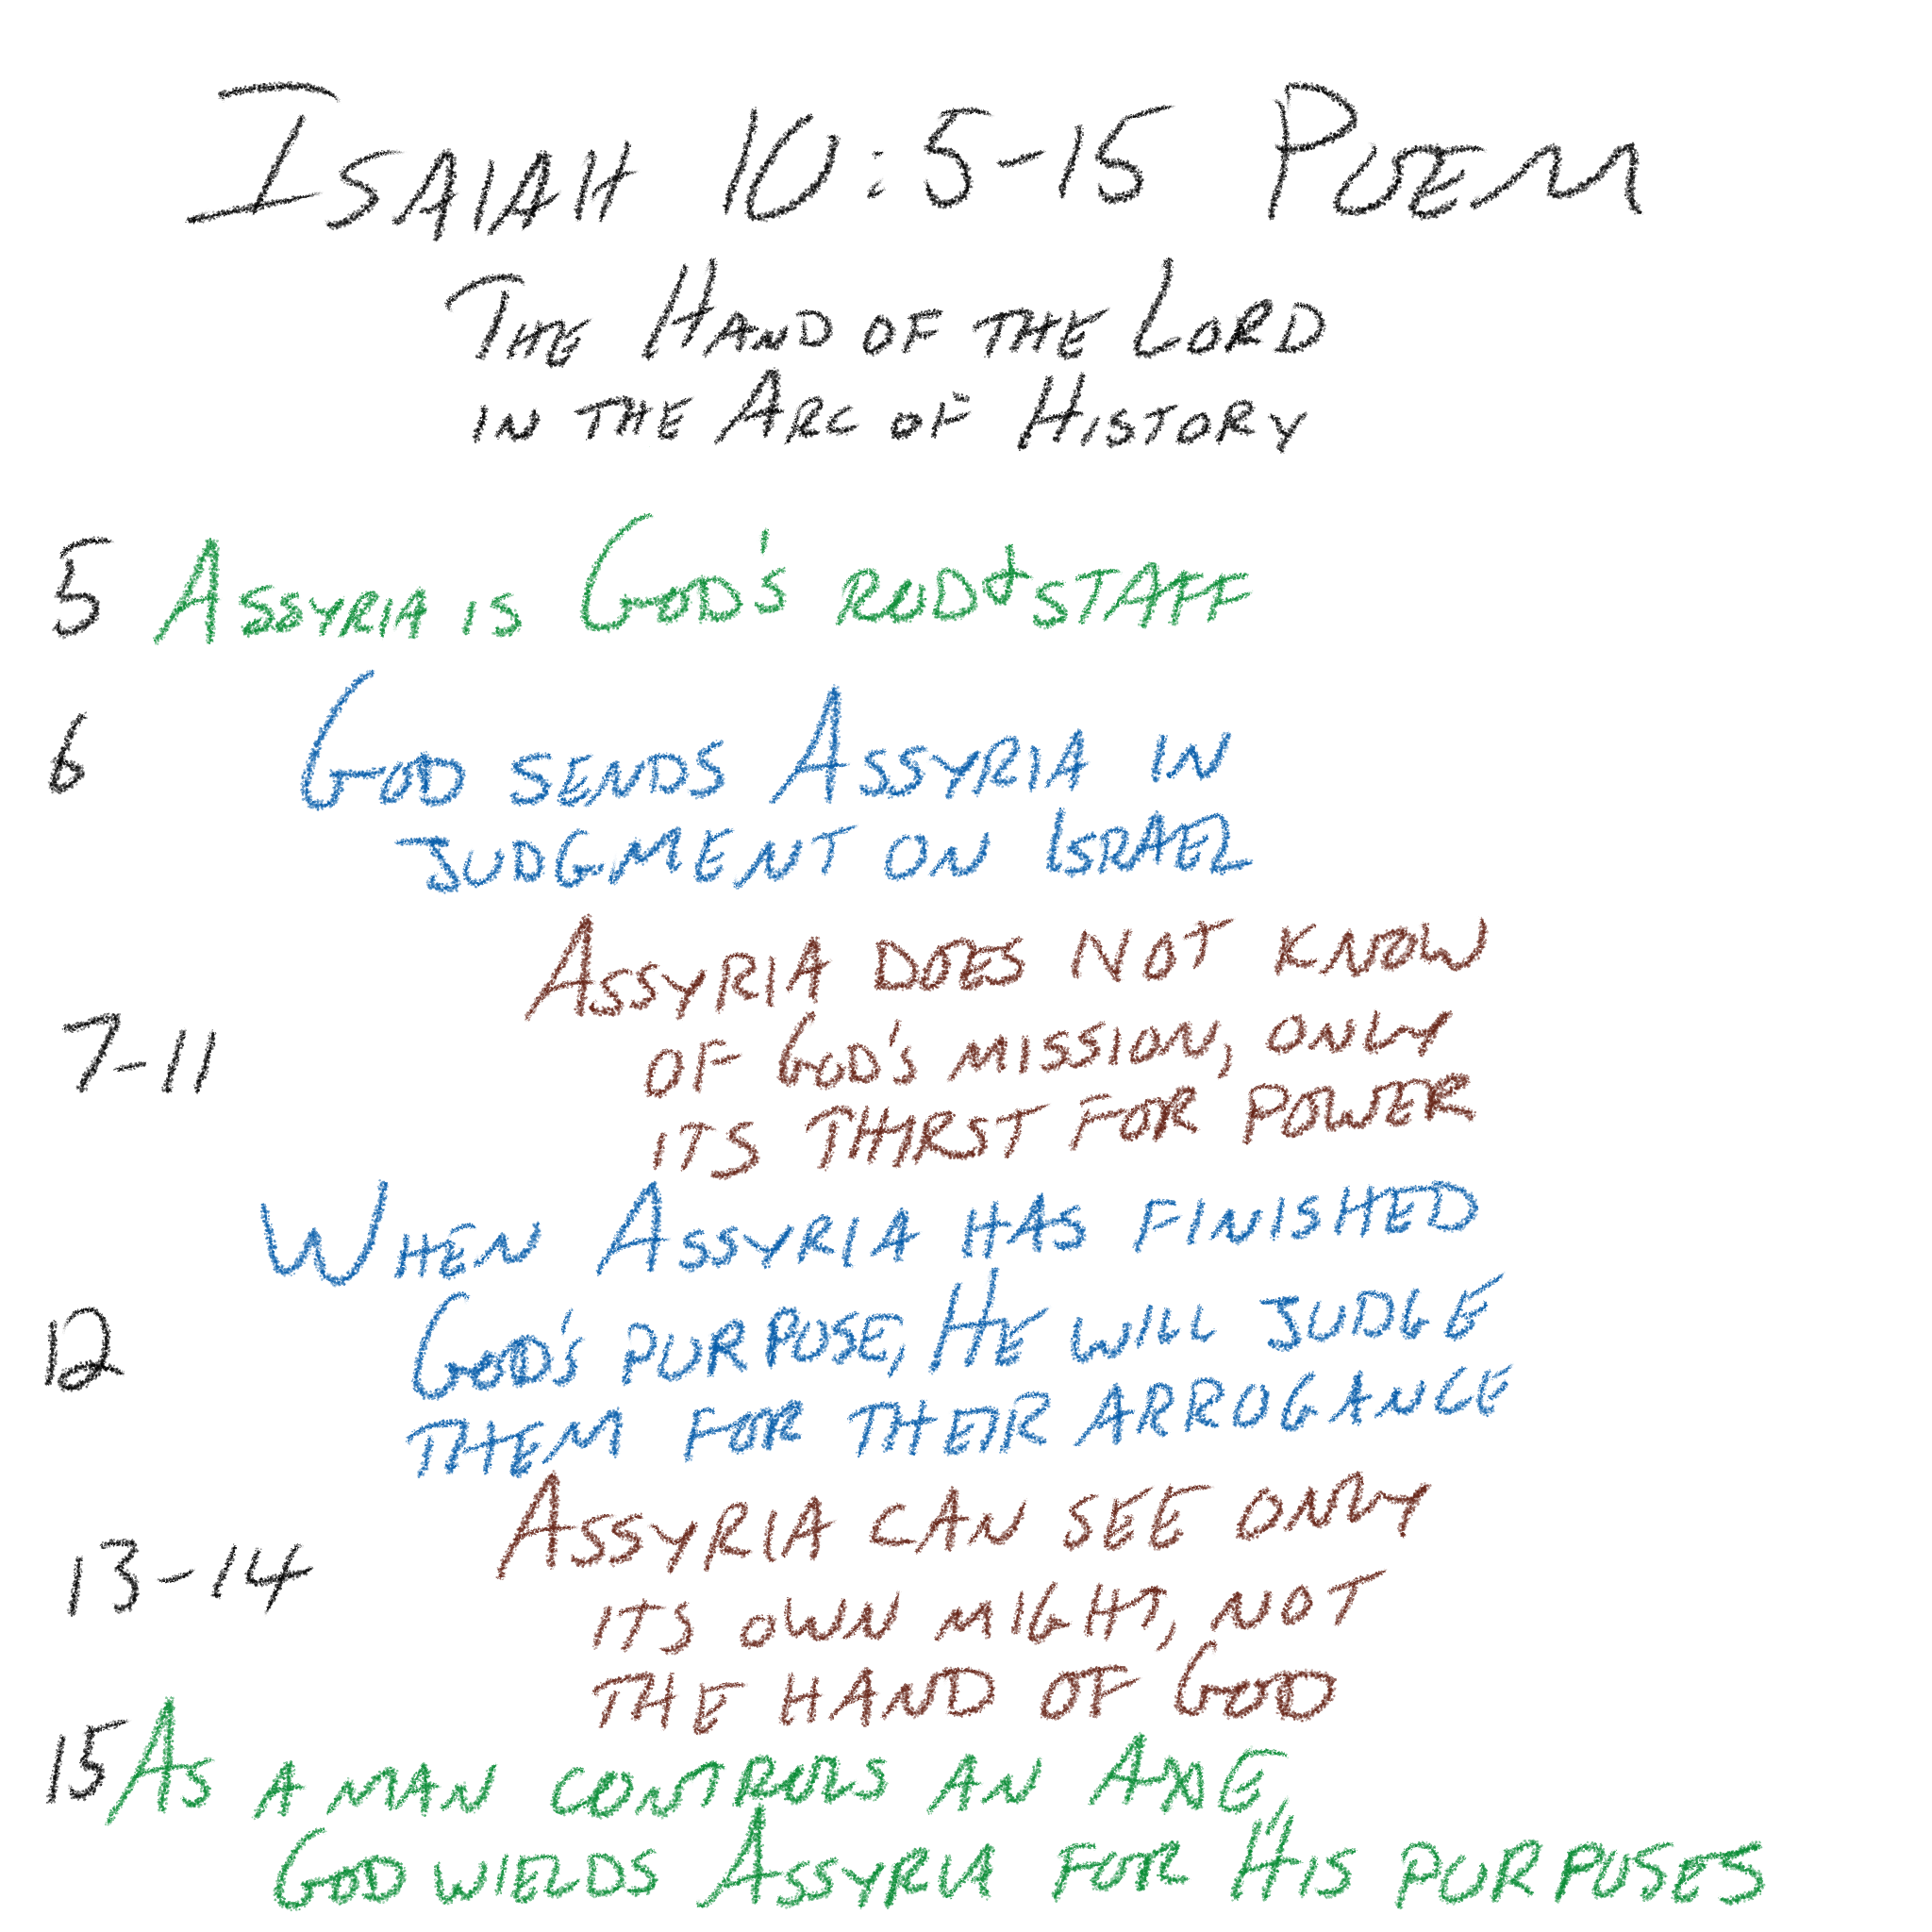 Isaiah 10:5-15 Poem
The Hand of the Lord
in the Arc of History
5 Assyria is God's rod & staff
6 God sends Assyria in
judgment on Israel
Assyria does not know
7-11 of God's mission, only
its thirst for power
When Assyria has finished
12 God's purpose, He will judge
them for their arrogance
Assyria can see only
13-14 its own might, not
the hand of God
15 As a man controls an axe,
God wields Assyria for His purposes